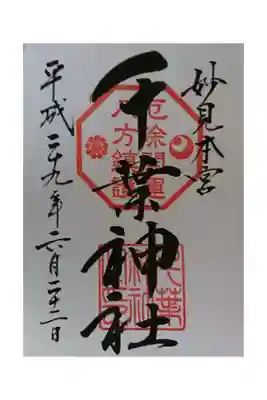 妙見本宮
千葉神社
平成二十九年六月二十二日
厄除開運
八方鎮護
千葉神社